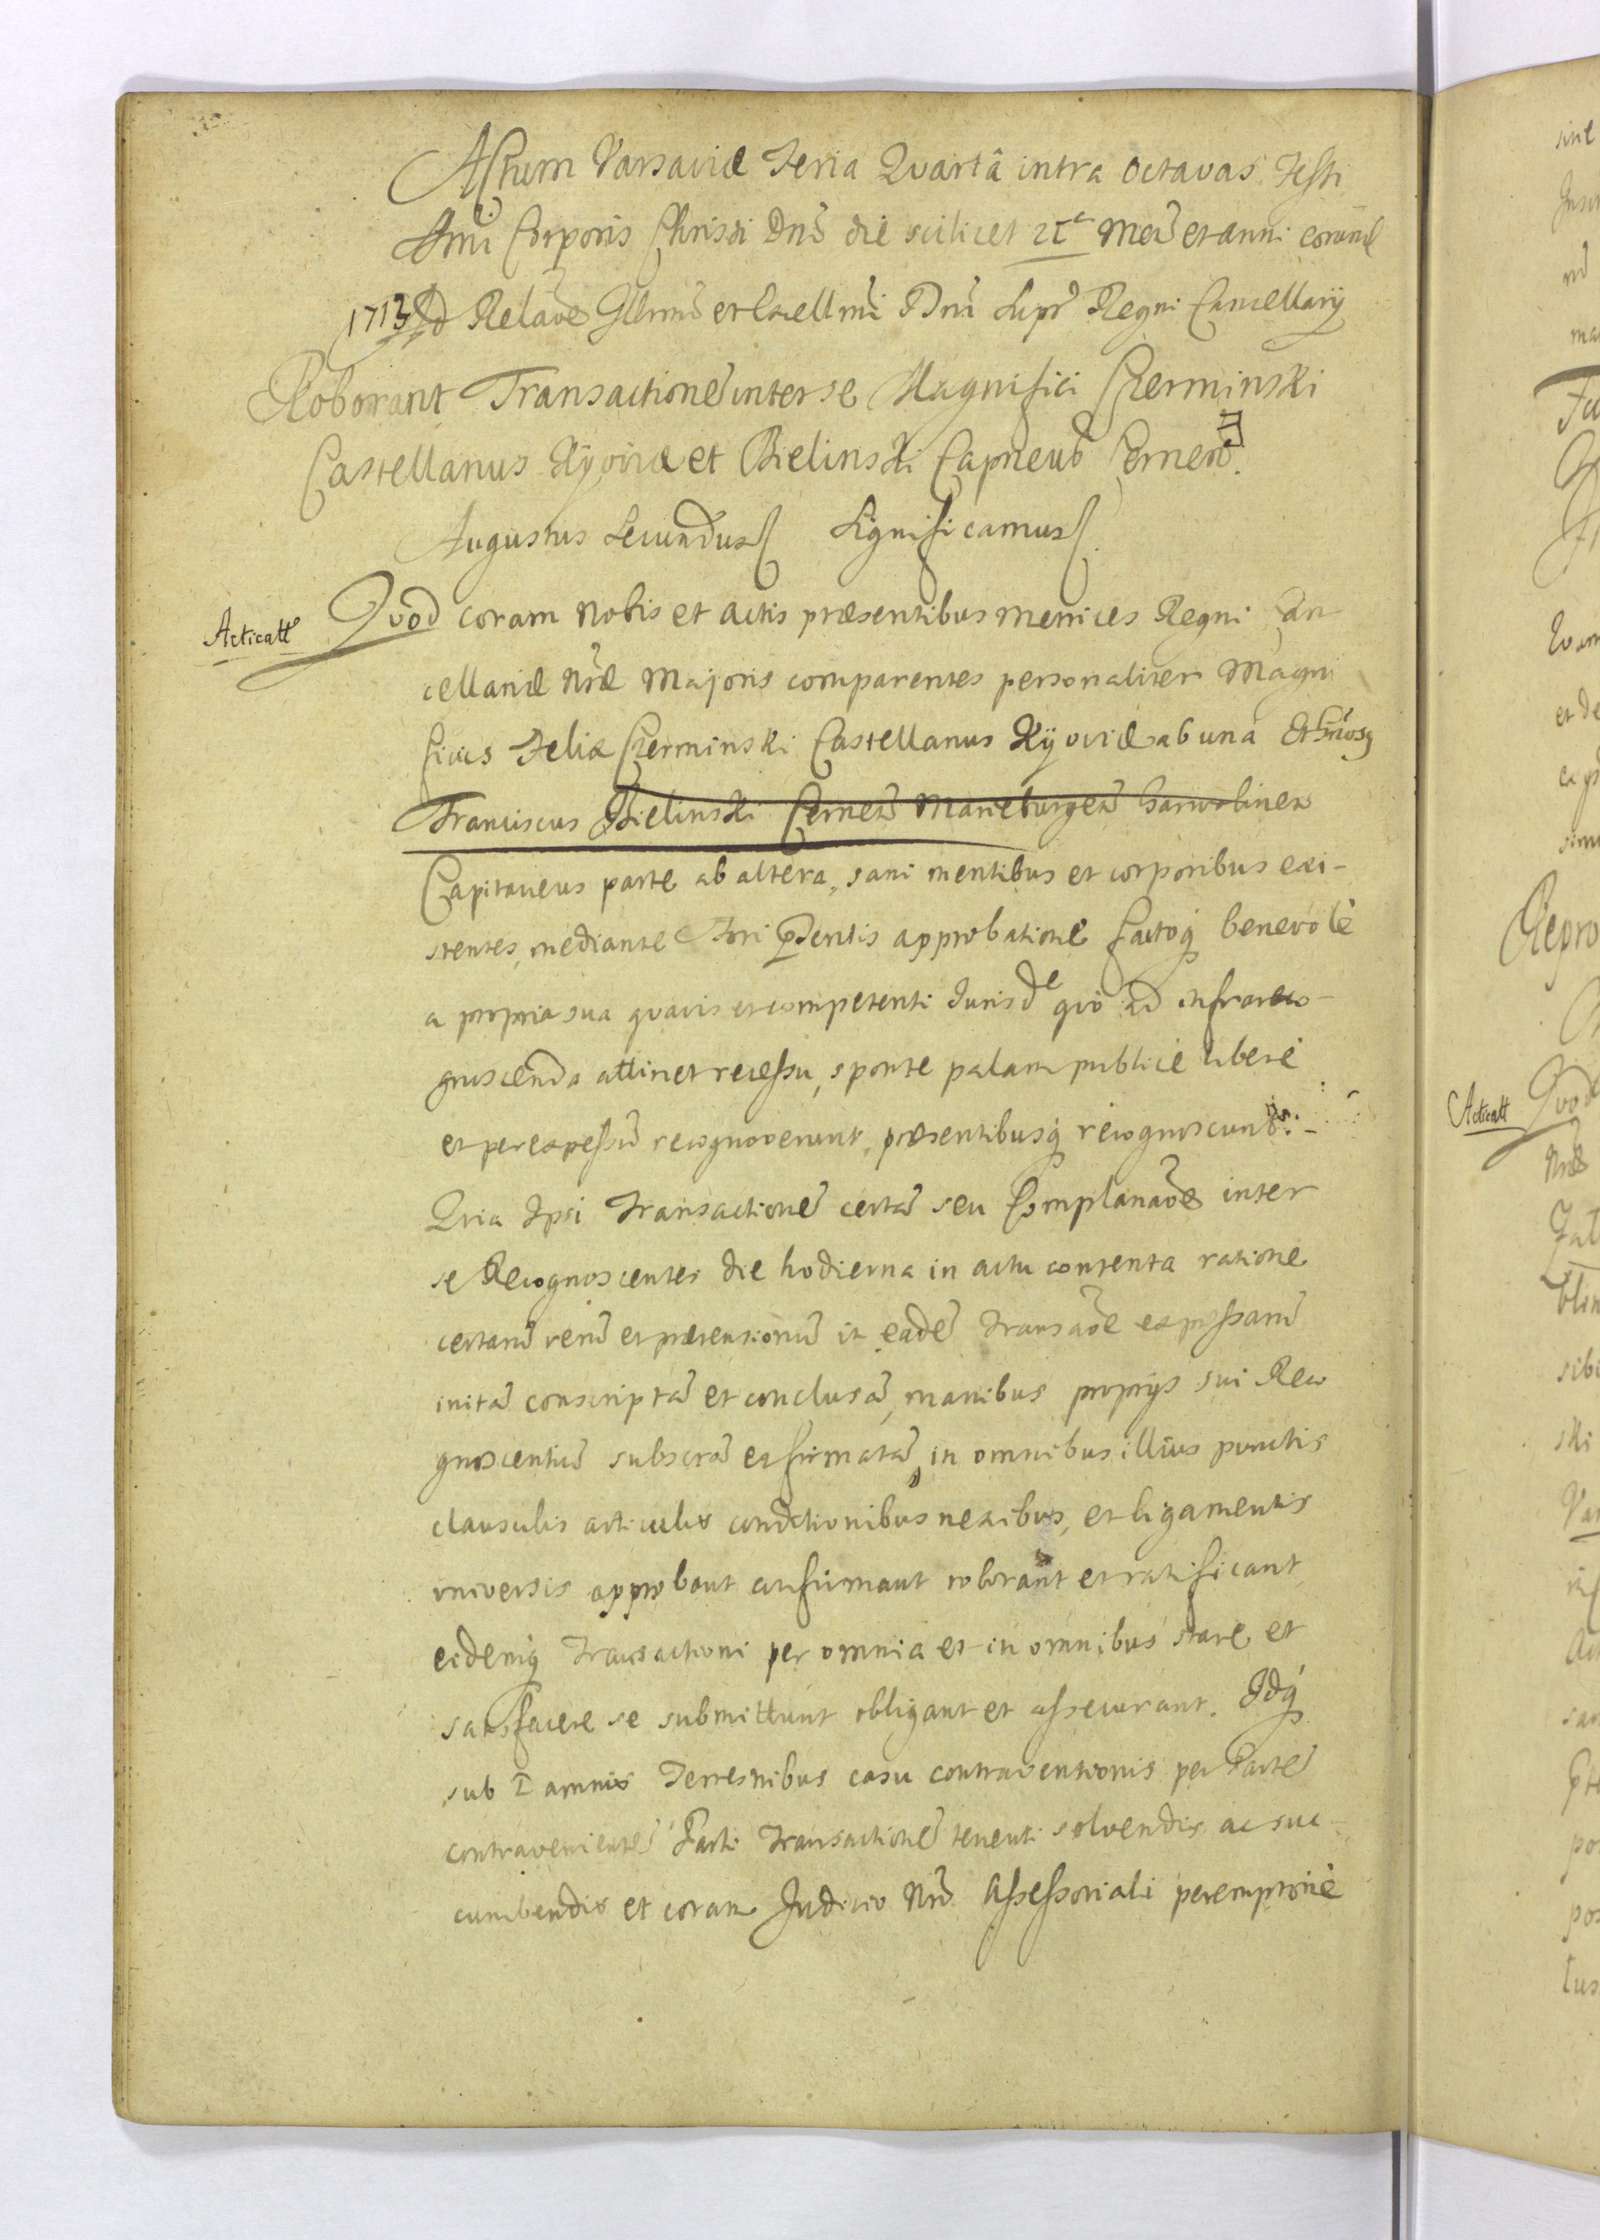 Actum Varsaviæ Feria Quartâ intra Octavas Festi
Smi Corporis Christi Dni die scilicet 21ª Mens et anni eorund
1713 Ad Relãoe Illmi et Excellmi Dni Supr Regni Cancellarij
Roborant Transactione inter se Magnifici Czerminski
Castellanus Kijoviæ et Bielinski Capneus Cernen
Augustus Secundus Significamus
Acticatt Quod coram Nobis et actis præsentibus Metrices Regni Can
cellariæ Nræ Majoris comparentes personaliter Magni
ficus Felix Czerminski Castellanus Kijoviæ ab una
Franciscus Bielinski Cernen Marieburgen Garwolinen
Capitaneus parte ab altera, sani mentibus et corporibus exi-
stentes, mediante Fori pntis approbatione factoq benevolè
a propria sua quavis et competenti Jurisde quo ad infrareco-
gnoscenda attinet recessu, sponte palam publicè liberè
et per expessũ recognoverunt, præsentibusq recognoscunt
Quia Ipsi Transactionẽ certã seu Complanãoe inter
se Recognoscentes die hodierna in actu contenta ratione
certarũ rerũ et prætensionũ in eadẽ Transãoe expssarũ
initã conscriptã et conclusã, manibus proprijs sui Reco
gnoscentiũ subscrã et firmatã, in omnibus illius punctis
clausulis articulis conditionibus nexibus, et ligamentis
universis approbant confirmant roborant et ratificant
eidemq Transactioni per omnia et in omnibus stare et
satisfacere se submittunt obligant et assecurant. Idq
sub Damnis Terrestribus casu contraventionis per Partẽ
contravenientẽ Parti Transactionẽ tenenti solvendis ac suc-
cumbendis et coram Judicio Nro Assessoriali peremptoriè